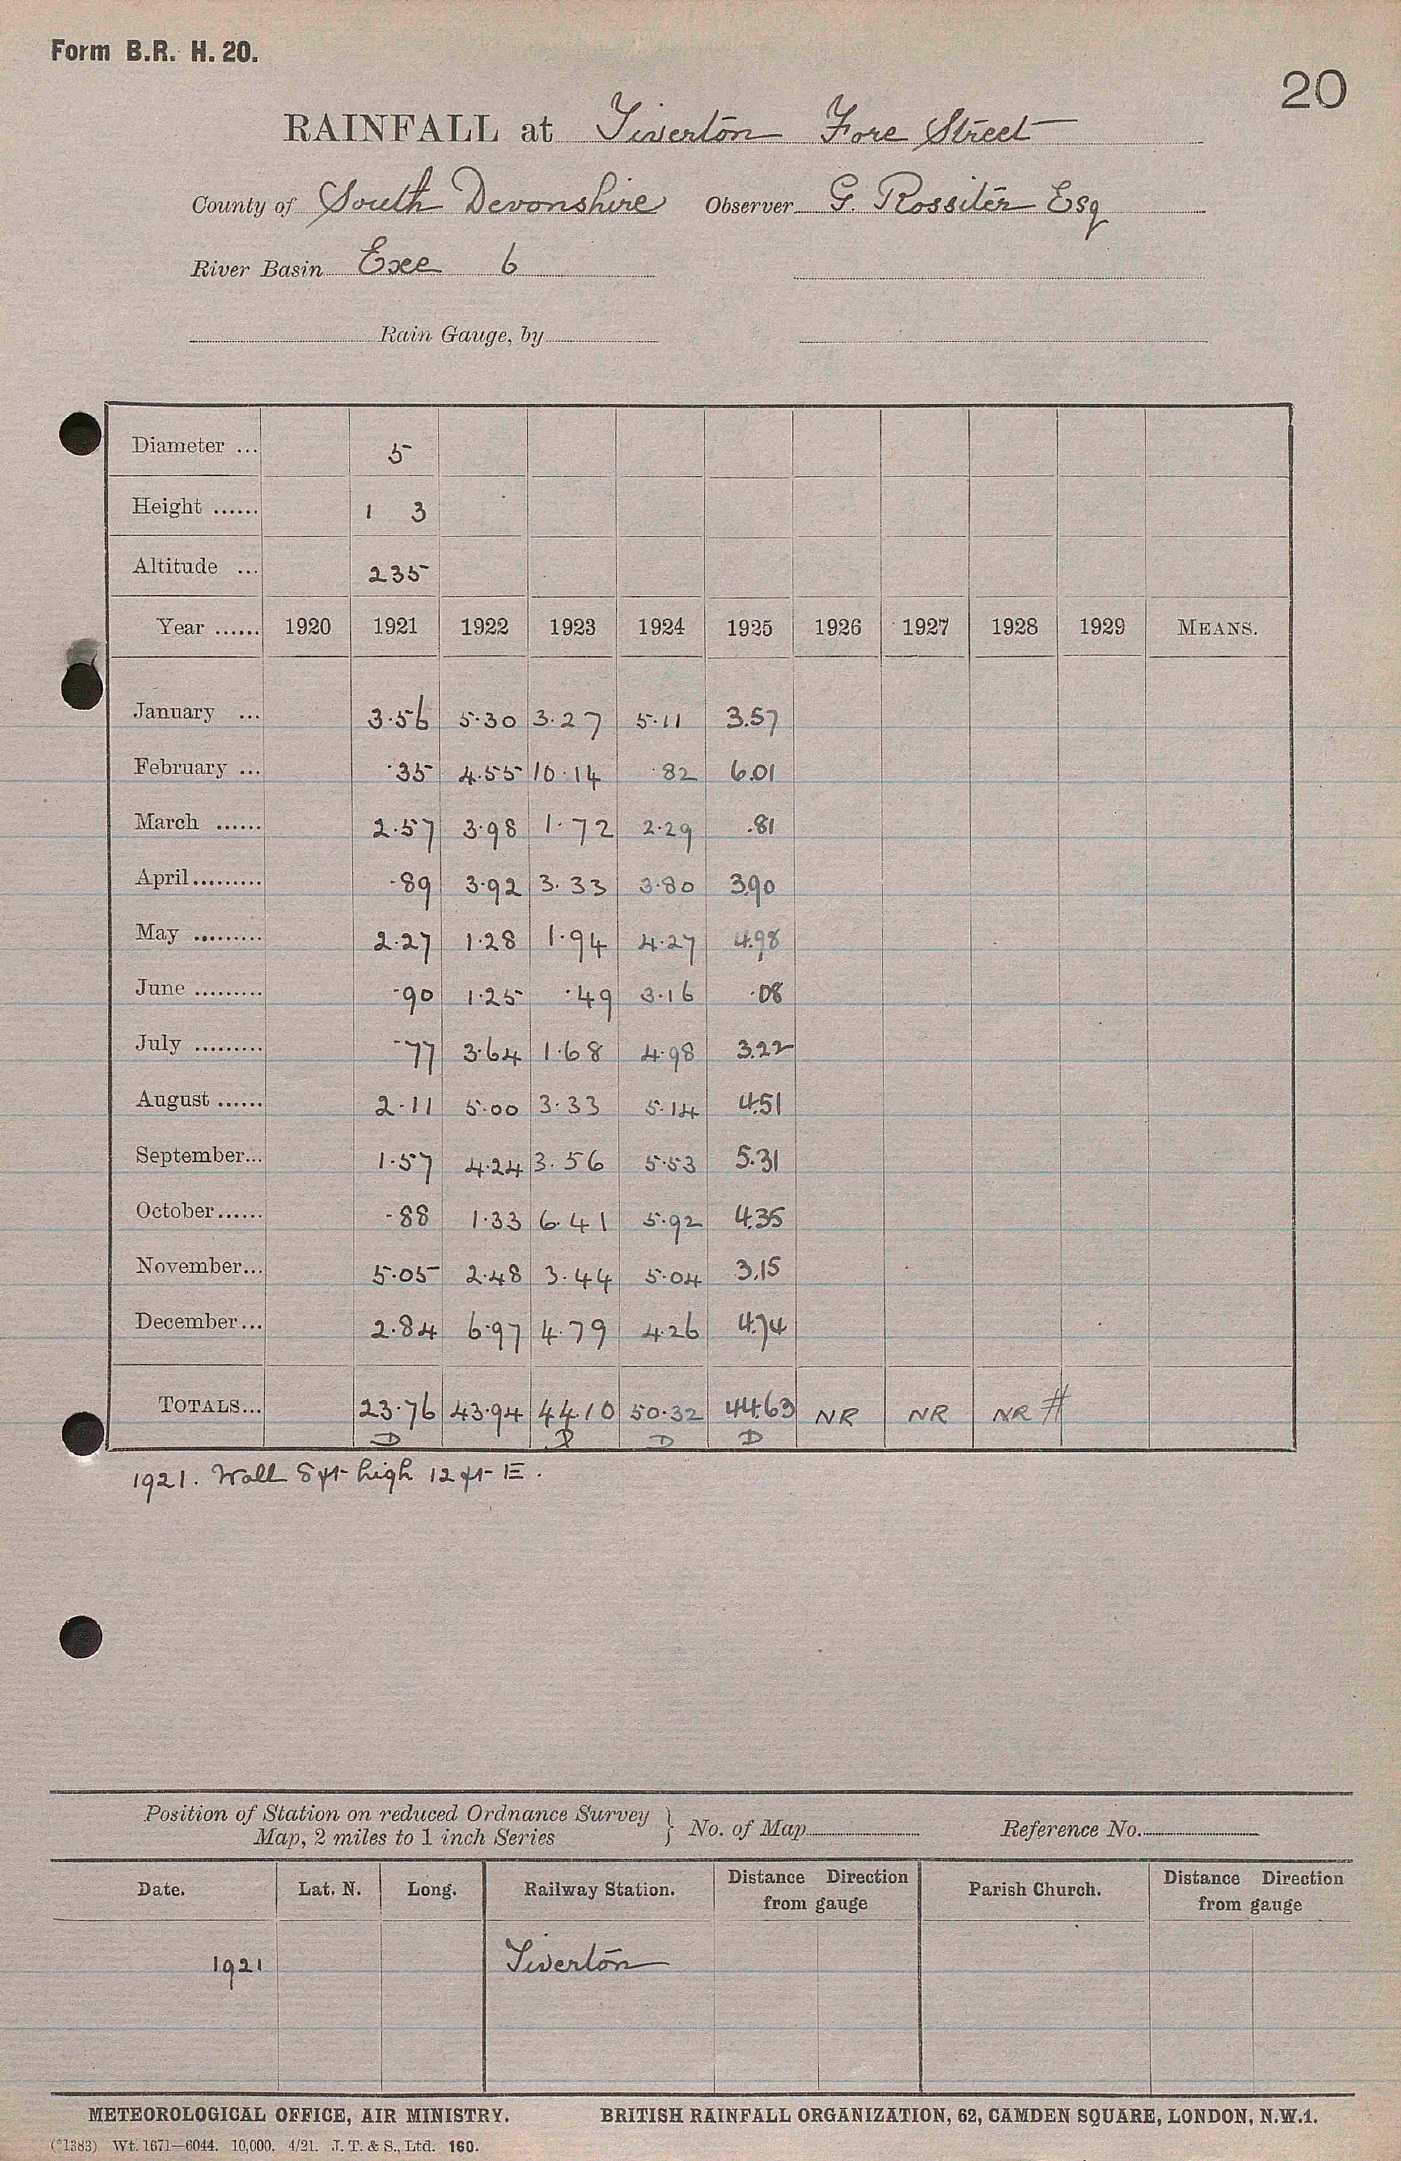 Form B.R. H. 20.
20
RAINFALL at Tiverton Fore Street
County of South Devonshire Observer G. Rossiter Esq
River Basin Exe 6
Rain Gauge, by
Diameter ... 5
Height ...... 1 3
Altitude ... 235
Year ...... 1920 1921 1922 1923 1924 1925 1926 1927 1928 1929 MEANS.
January ... 3.56 5.30 3.27 5.11 3.57
February ... .35 4.55 10.14 .82 6.01
March ...... 2.57 3.98 1.72 2.29 .81
April......... .89 3.92 3.33 3.80 3.90
May ......... 2.27 1.28 1.94 4.27 4.98
June ......... .90 1.25 .49 3.16 .08
July ......... .77 3.64 1.68 4.98 3.22
August ...... 2.11 5.00 3.33 5.14 4.51
September... 1.57 4.24 3.56 5.53 5.31
October...... .88 1.33 6.41 5.92 4.35
November... 5.05 2.48 3.44 5.04 3.15
December... 2.84 6.97 4.79 4.26 4.74
TOTALS... 23.76 43.94 44.10 50.32 44.63 NR NR NR #
D D D D
1921. Wall 8 ft high 12 ft E.
Position of Station on reduced Ordnance Survey Map, 2 miles to 1 inch Series } No. of Map Reference No.
Date. Lat. N. Long. Railway Station. Distance Direction from gauge Parish Church. Distance Direction from gauge
1921 Tiverton
METEOROLOGICAL OFFICE, AIR MINISTRY. BRITISH RAINFALL ORGANIZATION, 62, CAMDEN SQUARE, LONDON, N.W.1.
(*1383) Wt. 1671—6044. 10,000. 4/21. J. T. & S., Ltd. 160.